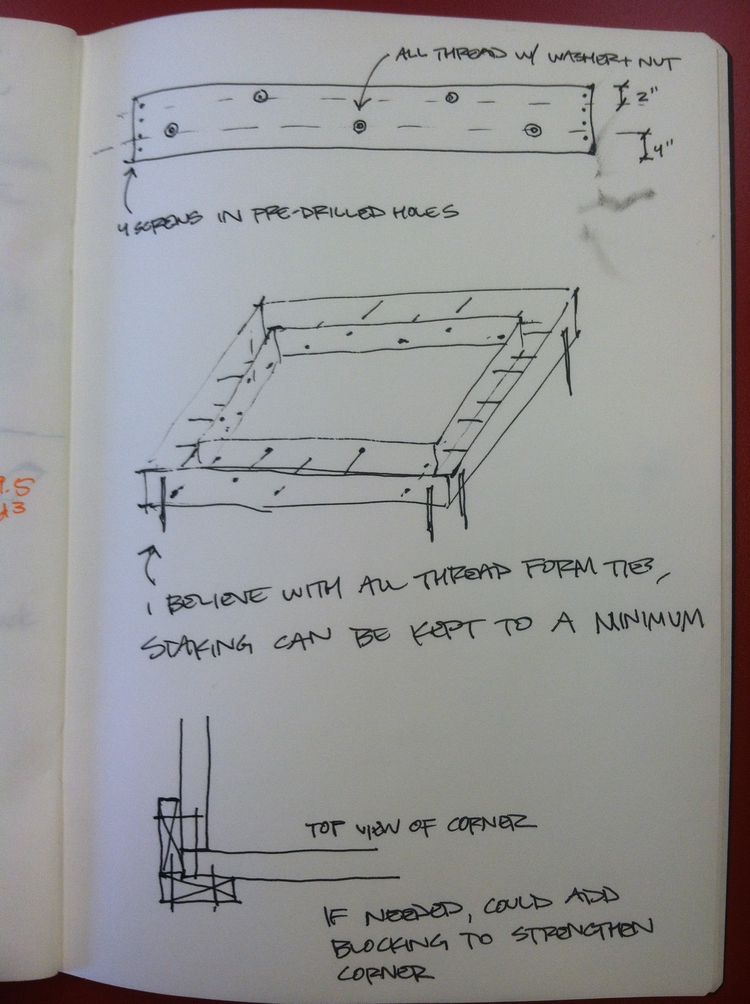 ALL THREAD W/ WASHER + NUT
2"
4"
4 SCREWS IN PRE-DRILLED HOLES
I BELIEVE WITH ALL THREAD FORM TIES,
STAKING CAN BE KEPT TO A MINIMUM
TOP VIEW OF CORNER
IF NEEDED, COULD ADD
BLOCKING TO STRENGTHEN
CORNER